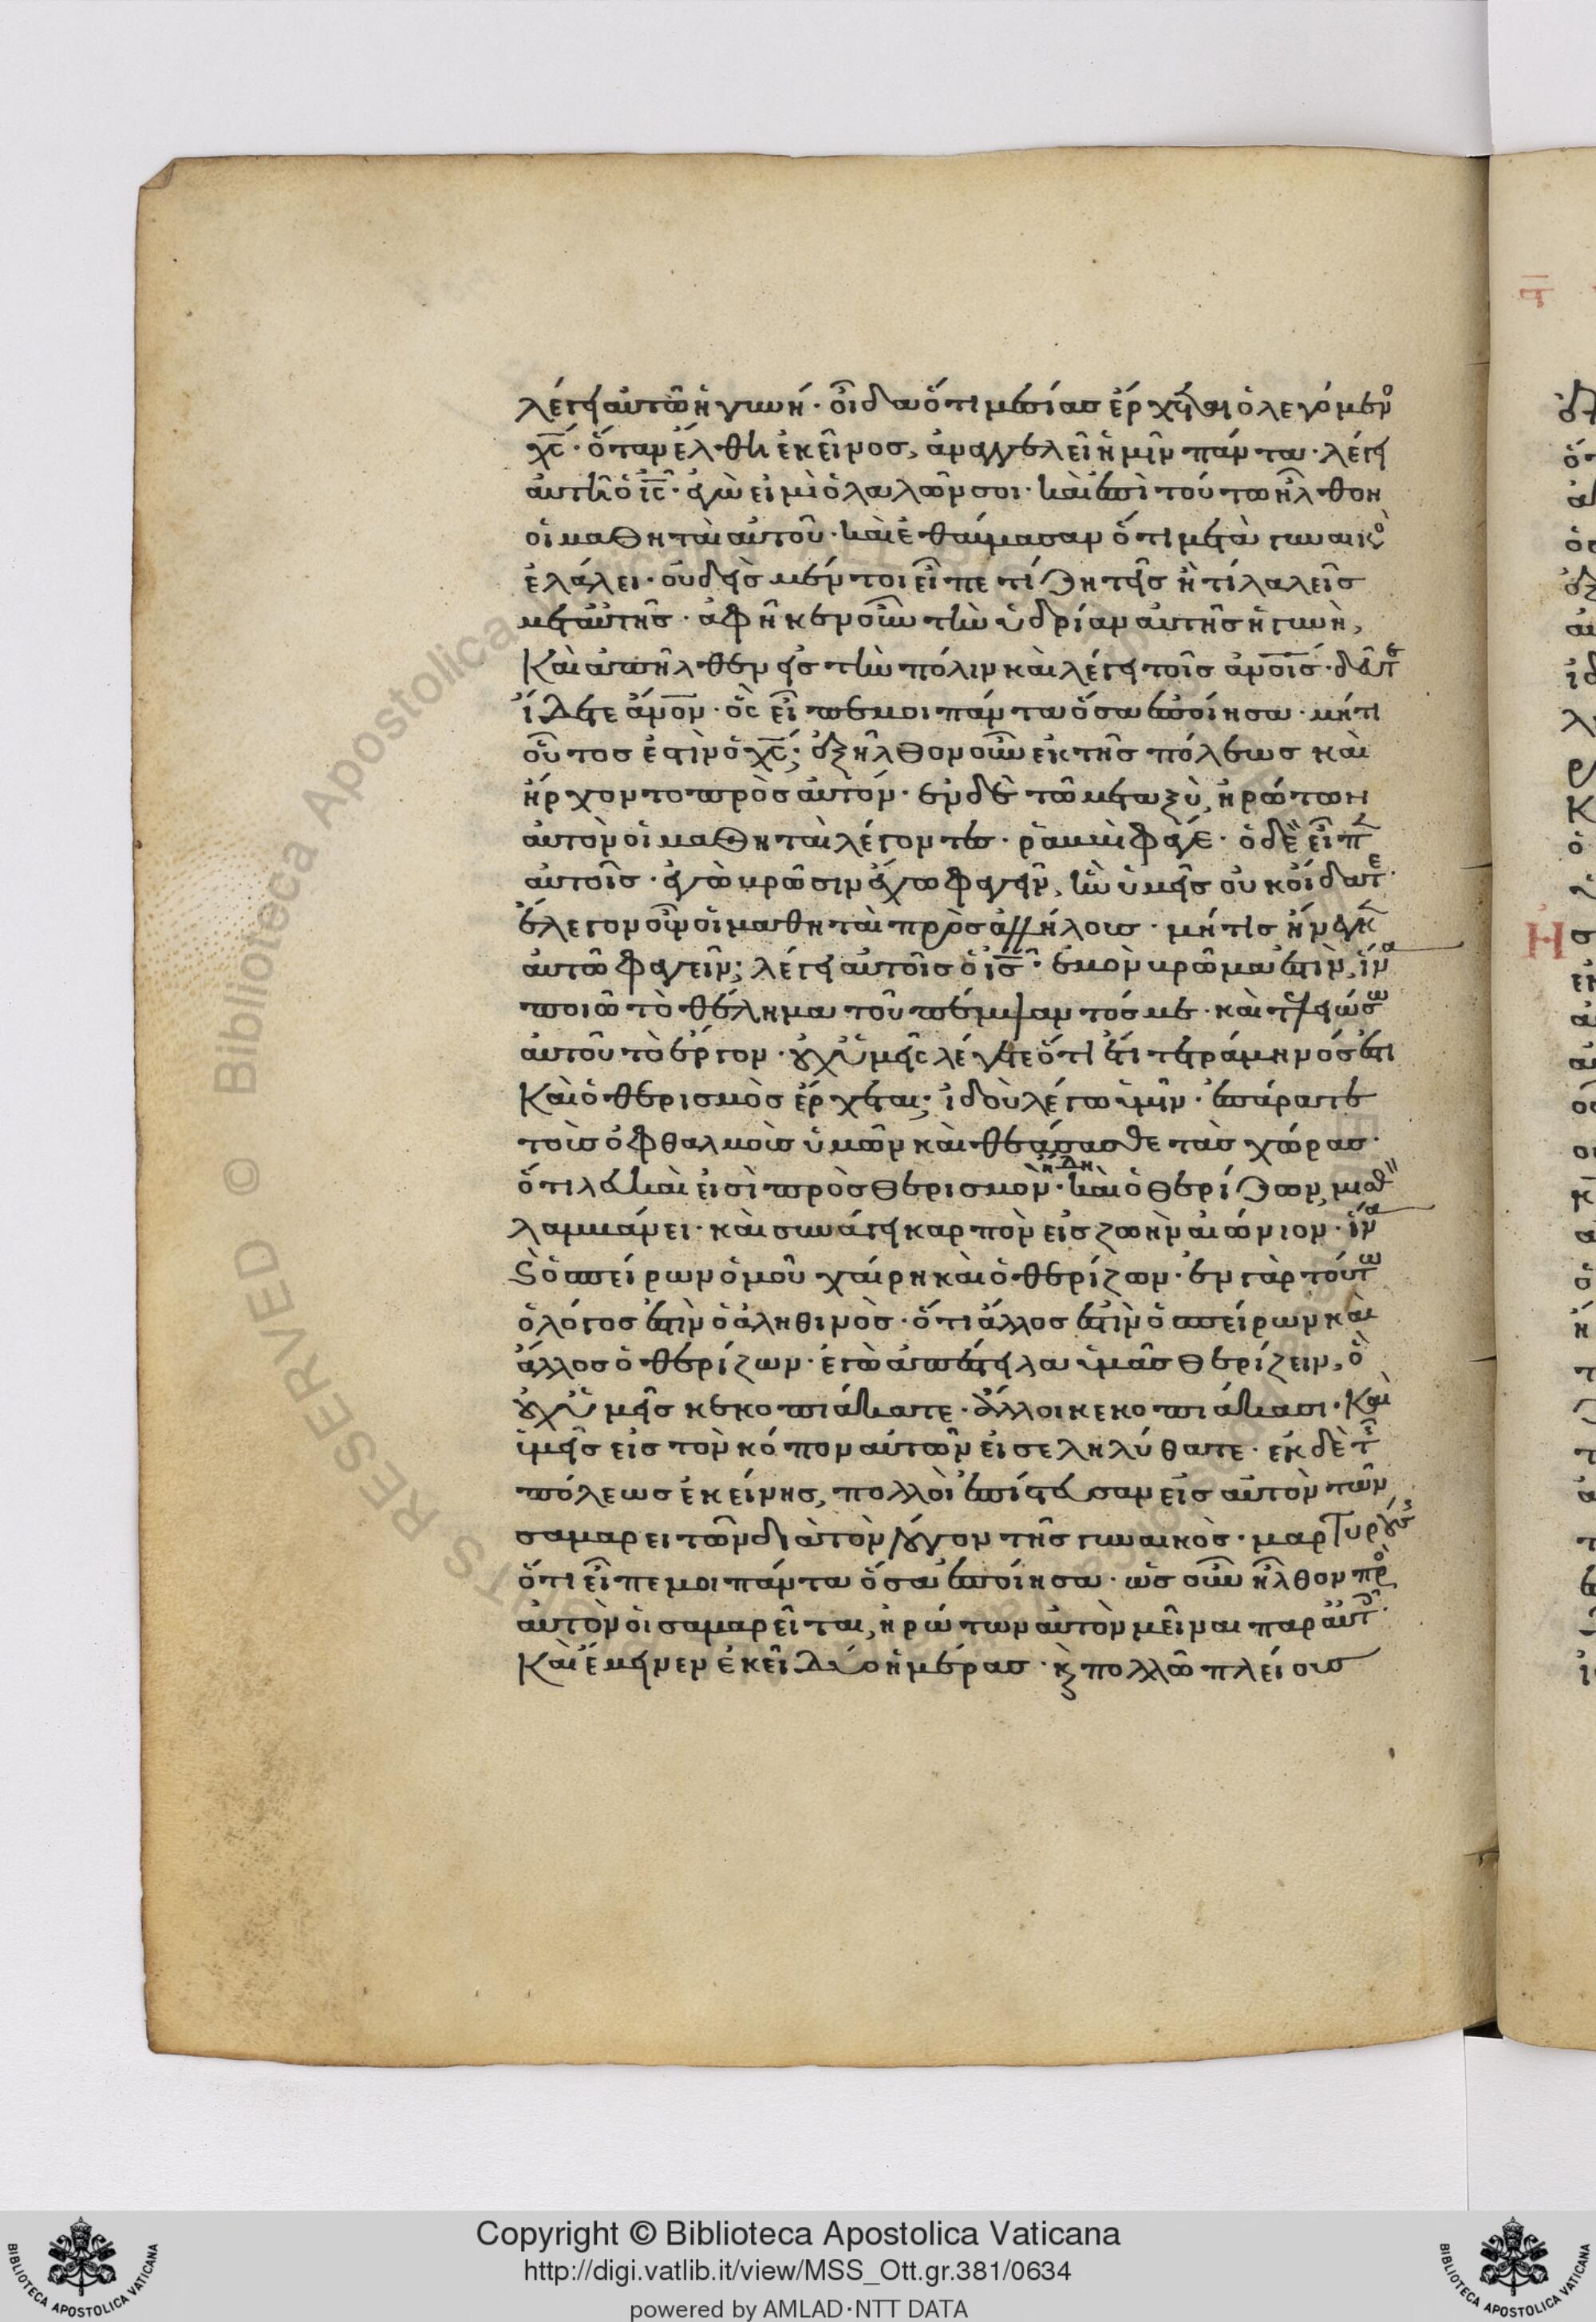 λέγει αὐτῶ ἡ γυνή· οἶδα ὅτι μεσίας ἔρχεται ὁ λεγόμενο
χς· ὅταν ἔλθη ἐκεῖνος, ἀναγγελεῖ ἡμῖν πάντα· λέγει
αὐτῆ ὁ ις· ἐγὼ εἰμὶ ὁ λαλῶν σοι· καὶ ἐπὶ τούτω ἦλθον
οἱ μαθηταὶ αὐτοῦ· καὶ ἐθαύμασαν ὅτι μετὰ γυναικὸ
ἐλάλει· οὐδεὶς μέντοι εἶπε τί ζητεῖς ἢ τί λαλεῖς
μετ αὐτῆς· ἀφῆκεν οὖν τὴν ὑδρίαν αὐτῆς ἡ γυνὴ,
Καὶ ἀπῆλθεν εἰς τὴν πόλιν καὶ λέγει τοῖς ἀνοις· δεῦτε
ἴδετε ἄνον· ὃς εἶπε μοι πάντα ὅσα ἐποίησα· μήτι
οὗτος ἐστὶν ὁ χς; ἐξῆλθον οὖν ἐκ τῆς πόλεως καὶ
ἤρχοντο πρὸς αὐτόν· ἐν δὲ τῶ μεταξὺ, ἠρώτων
αὐτὸν οἱ μαθηταὶ λέγοντες· ῥαββὶ φάγε· ὁ δὲ εἶπ
αὐτοῖς· ἐγὼ βρῶσιν ἔχω φαγεῖν, ἣν ὑμεῖς οὐκ οἴδατε·
ἔλεγον οὖν οἱ μαθηταὶ πρὸς ἀλλήλους· μή τις ἤνεγκ
αὐτῶ φαγεῖν; λέγει αὐτοῖς ὁ ις· ἐμὸν βρῶμα ἐστὶν, ἵνα
ποιῶ τὸ θέλημα τοῦ πέμψαντός με· καὶ τελειώσω
αὐτοῦ τὸ ἔργον· οὐχ ὑμεῖς λέγετε ὅτι ἔτι τετράμηνός ἐστι
Καὶ ὁ θερισμὸς ἔρχεται; ἰδοὺ λέγω ὑμῖν· ἐπάρατε
τοὺς ὀφθαλμοὺς ὑμῶν καὶ θεάσασθε τὰς χώρας·
ὅτι λευκαὶ εἰσὶ πρὸς θερισμὸν ἤδη· καὶ ὁ θερίζων, μισθ
λαμβάνει· καὶ συνάγει καρπὸν εἰς ζωὴν αἰώνιον· ἵνα
ϛ ὁ σπείρων ὁμοῦ χαίρη καὶ ὁ θερίζων· ἐν γὰρ τούτω
ὁ λόγος ἐστὶν ὁ ἀληθινὸς· ὅτι ἄλλος ἐστὶν ὁ σπείρων καὶ
ἄλλος ὁ θερίζων· ἐγὼ ἀπέστειλα ὑμᾶς θερίζειν, ὃ
οὐχ ὑμεῖς κεκοπιάκατε· ἄλλοι κεκοπιάκασι· Καὶ
ὑμεῖς εἰς τὸν κόπον αὐτῶν εἰσεληλύθατε· ἐκ δὲ τῆς
πόλεως ἐκείνης, πολλοὶ ἐπίστευσαν εἰς αὐτὸν τῶν
σαμαρειτῶν διὰ τὸν λόγον τῆς γυναικὸς· μαρτυρούσης
ὅτι εἶπε μοι πάντα ὅσα ἐποίησα· ὡς οὖν ἦλθον πρὸ
αὐτὸν οἱ σαμαρεῖται, ἠρώτων αὐτὸν μεῖναι παρ αὐτ·
Καὶ ἔμεινεν ἐκεῖ δύο ἡμέρας· κ πολλῶ πλείους
© Biblioteca Apostolica Vaticana
Copyright © Biblioteca Apostolica Vaticana
http://digi.vatlib.it/view/MSS_Ott.gr.381/0634
powered by AMLAD·NTT DATA
BIBLIOTECA APOSTOLICA VATICANA
BIBLIOTECA APOSTOLICA VATICANA